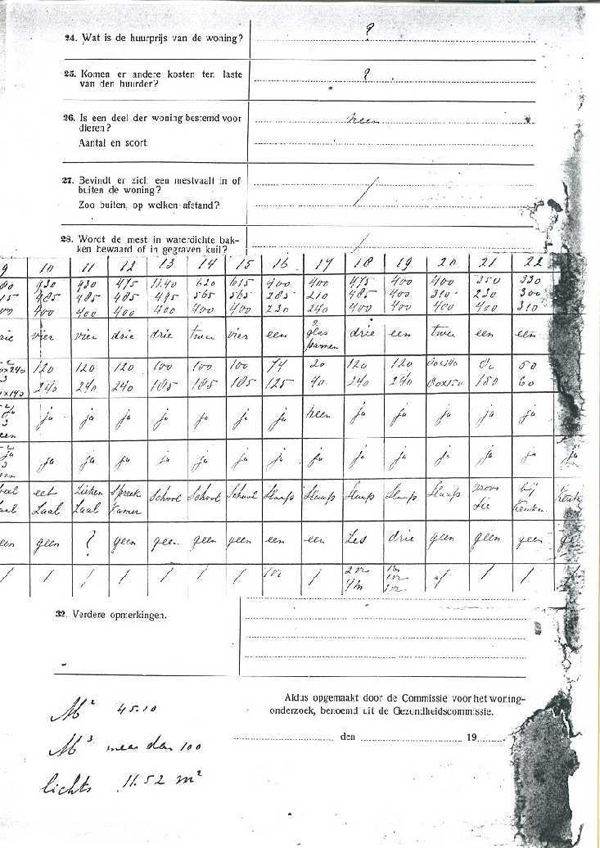 24. Wat is de huurprijs van de woning? ?
25. Komen er andere kosten ten laste ?
van den huurder?
26. Is een deel der woning bestemd voor neen
dieren?
Aantal en soort.
27. Bevindt er zich een mestvaalt in of
buiten de woning? /
Zoo buiten, op welken afstand?
28. Wordt de mest in waterdichte bak- /
ken bewaard of in gegraven kuil?
9 10 11 12 13 14 15 16 17 18 19 20 21 22
930 930 475 1140 620 615 400 400 475 400 400 350 330
985 485 485 495 565 565 285 210 485 400 310 230 300
400 400 400 400 400 400 230 240 400 400 400 400 310
vier vier drie drie twee vier een 2 glas drie een twee een een
ramen
120 120 120 100 100 100 74 20 120 120 80x140 60
240 240 240 185 185 185 125 40 240 240 80x150 150 60
ja ja ja ja ja ja ja neen ja ja ja ja ja
ja ja ja ja ja ja ja ja ja ja ja ja ja
eet Zieken Spreek School School School Slaap Slaap Slaap Slaap Slaap bij
Zaal Zaal Kamer Keuken
geen geen ? geen geen geen geen een een zes drie geen geen geen
32. Verdere opmerkingen.
Aldus opgemaakt door de Commissie voor het woning-
onderzoek, benoemd uit de Gezondheidscommissie.
den 19
M² 45.10
M³ meer dan 100
lichts 11.52 m²